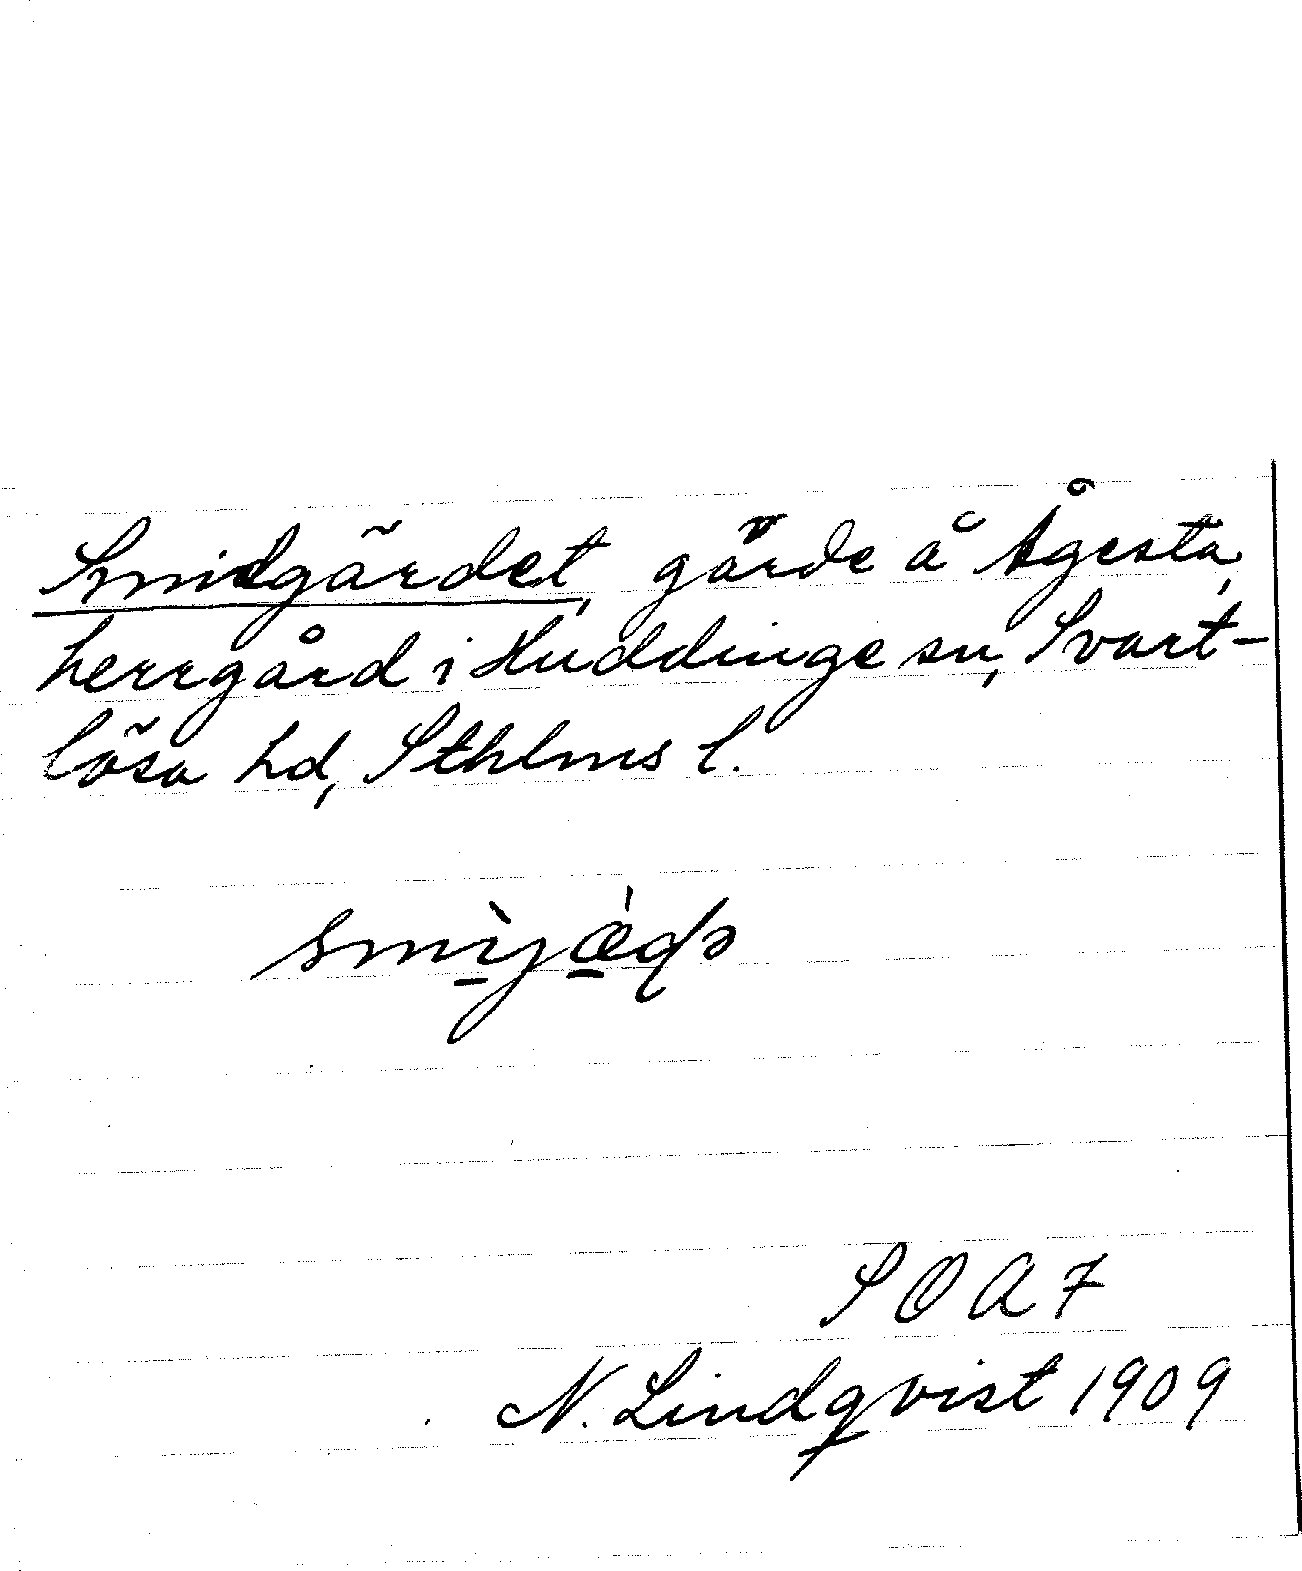 Smidgärdet, gärde å Ågesta,
herrgård i Huddinge sn, Svart-
lösa hd, Sthlms l.
SOA 7
N. Lindqvist 1909